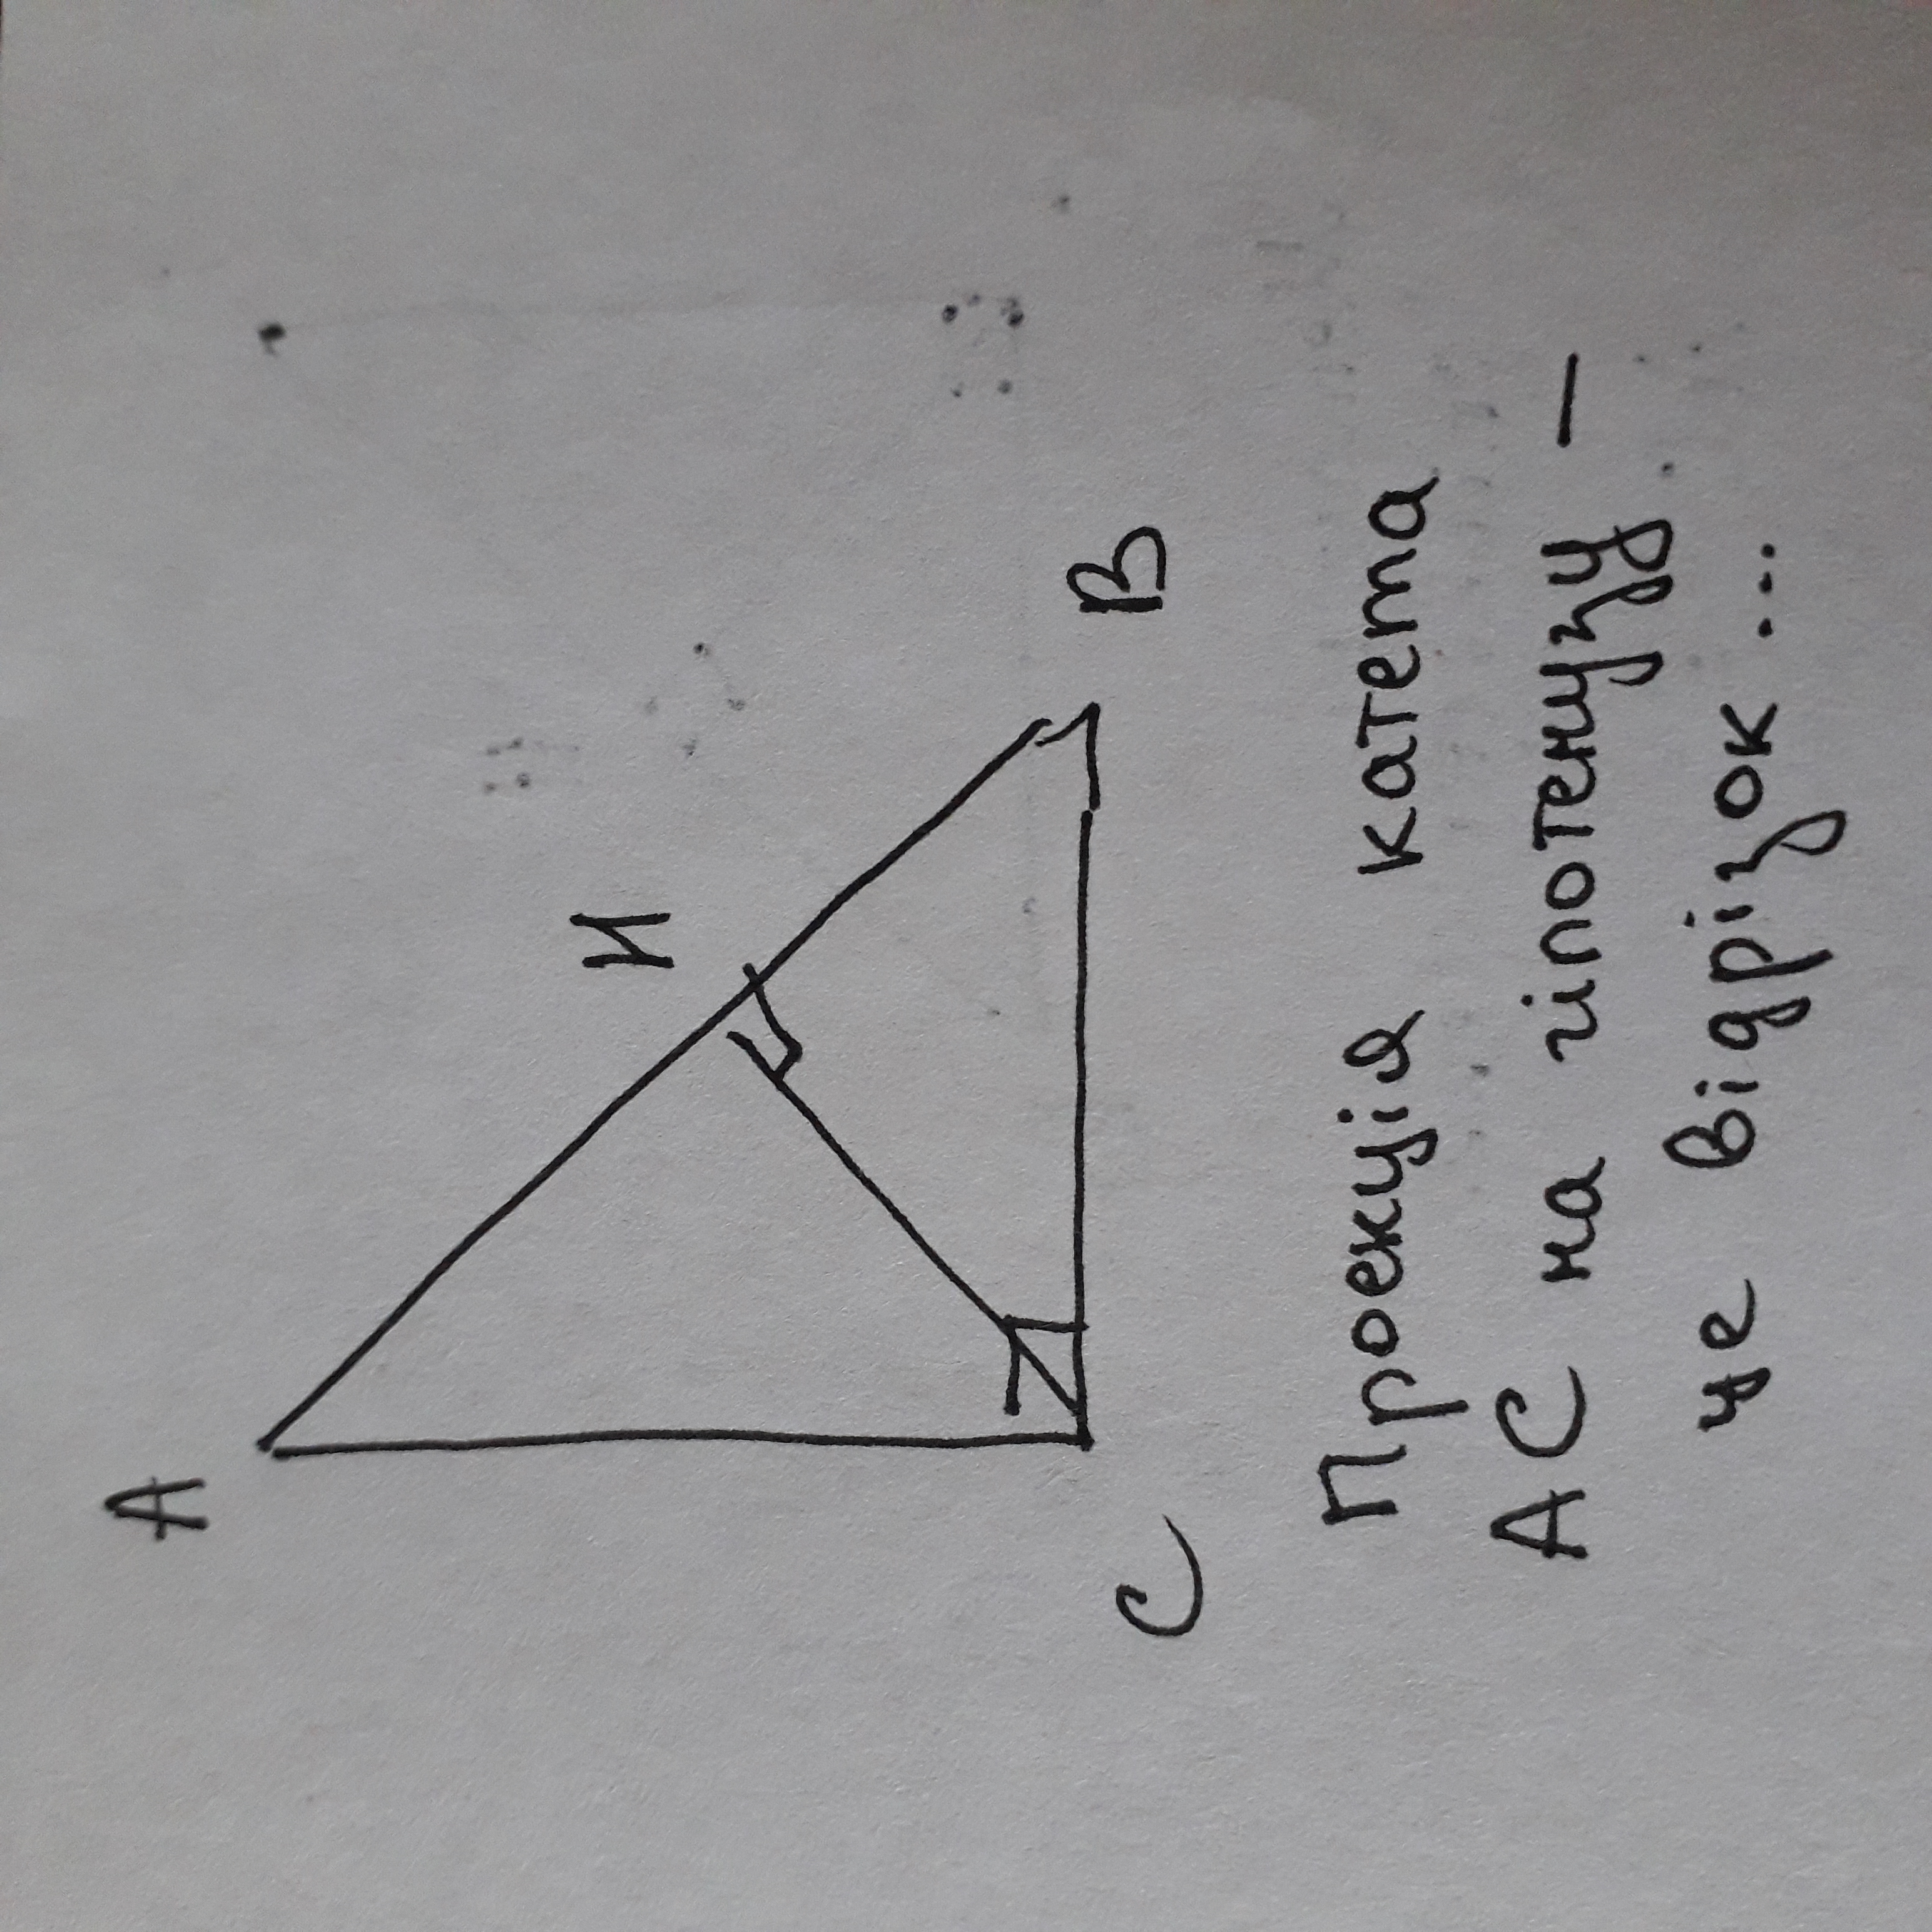 А
Н
С
В
Проекція катета
АС на гіпотенузу —
це відрізок...